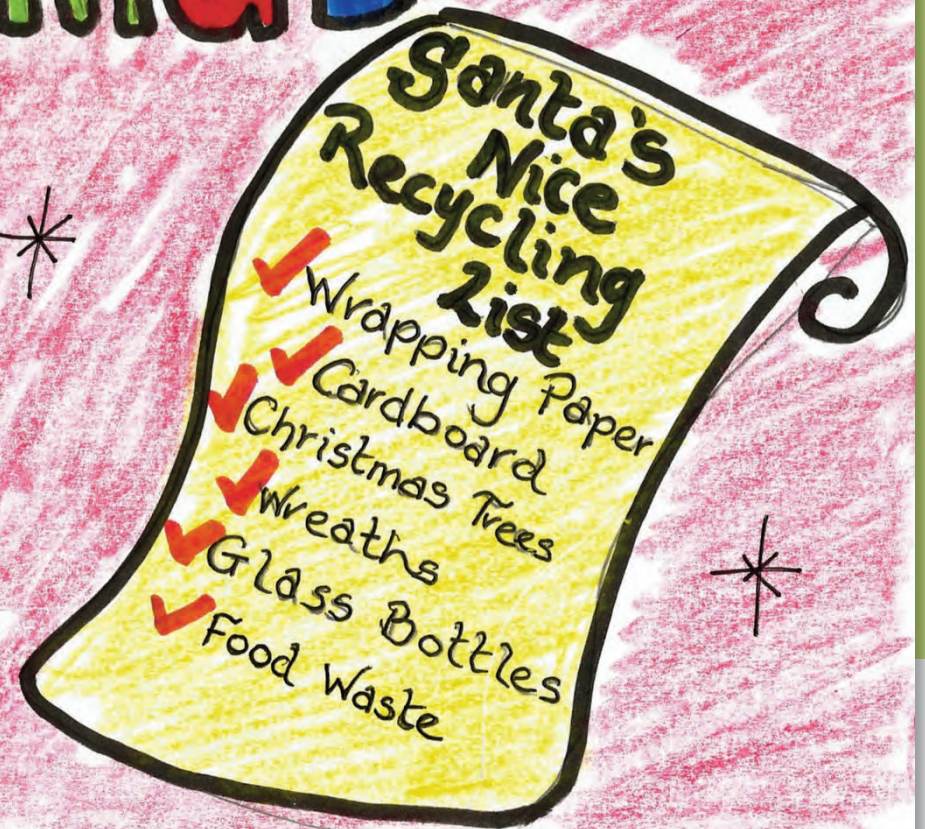 Santa's
Nice
Recycling
List
Wrapping Paper
Cardboard
Christmas Trees
Wreaths
Glass Bottles
Food Waste